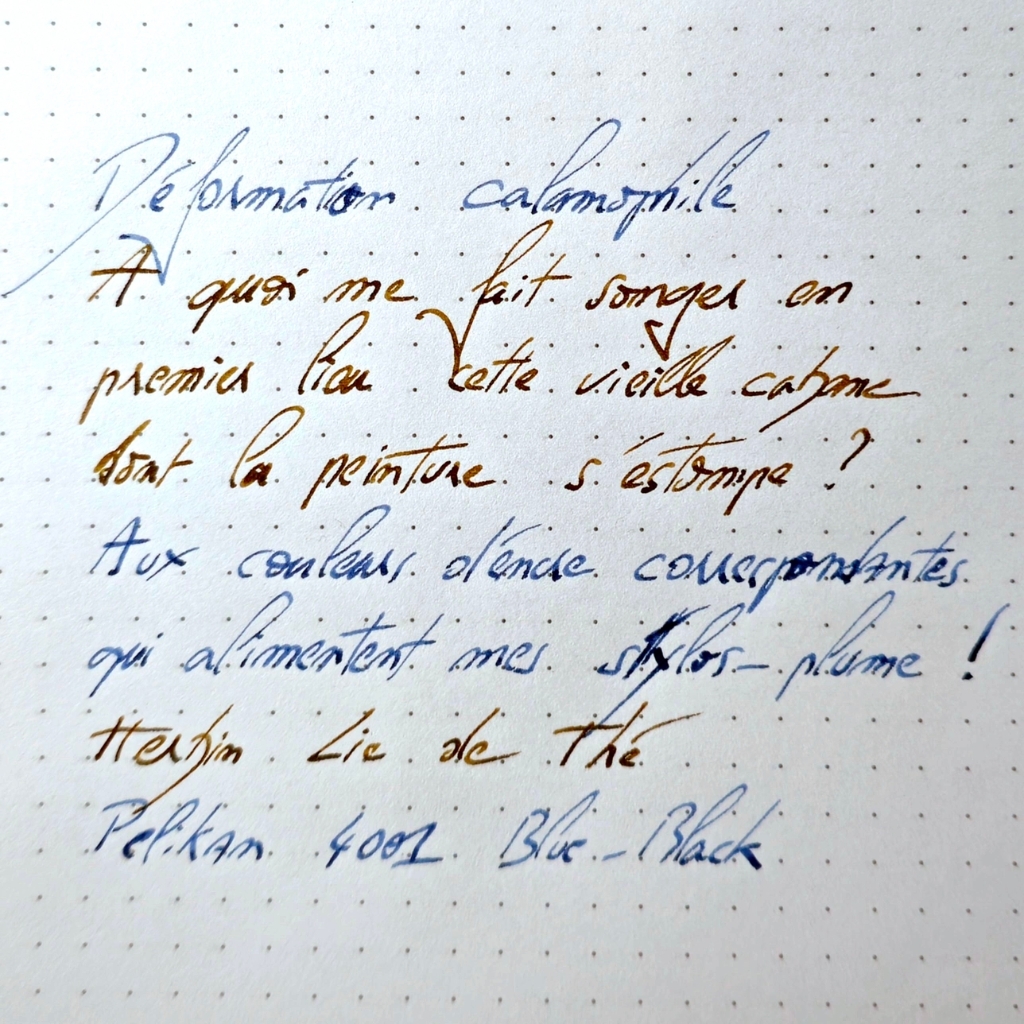 Déformation calamophile
A quoi me fait songer en
premier lieu cette vieille cabane
dont la peinture s'estompe ?
Aux couleurs d'encre correspondantes
qui alimentent mes stylos-plume !
Herbin Lie de Thé
Pelikan 4001 Blue-Black